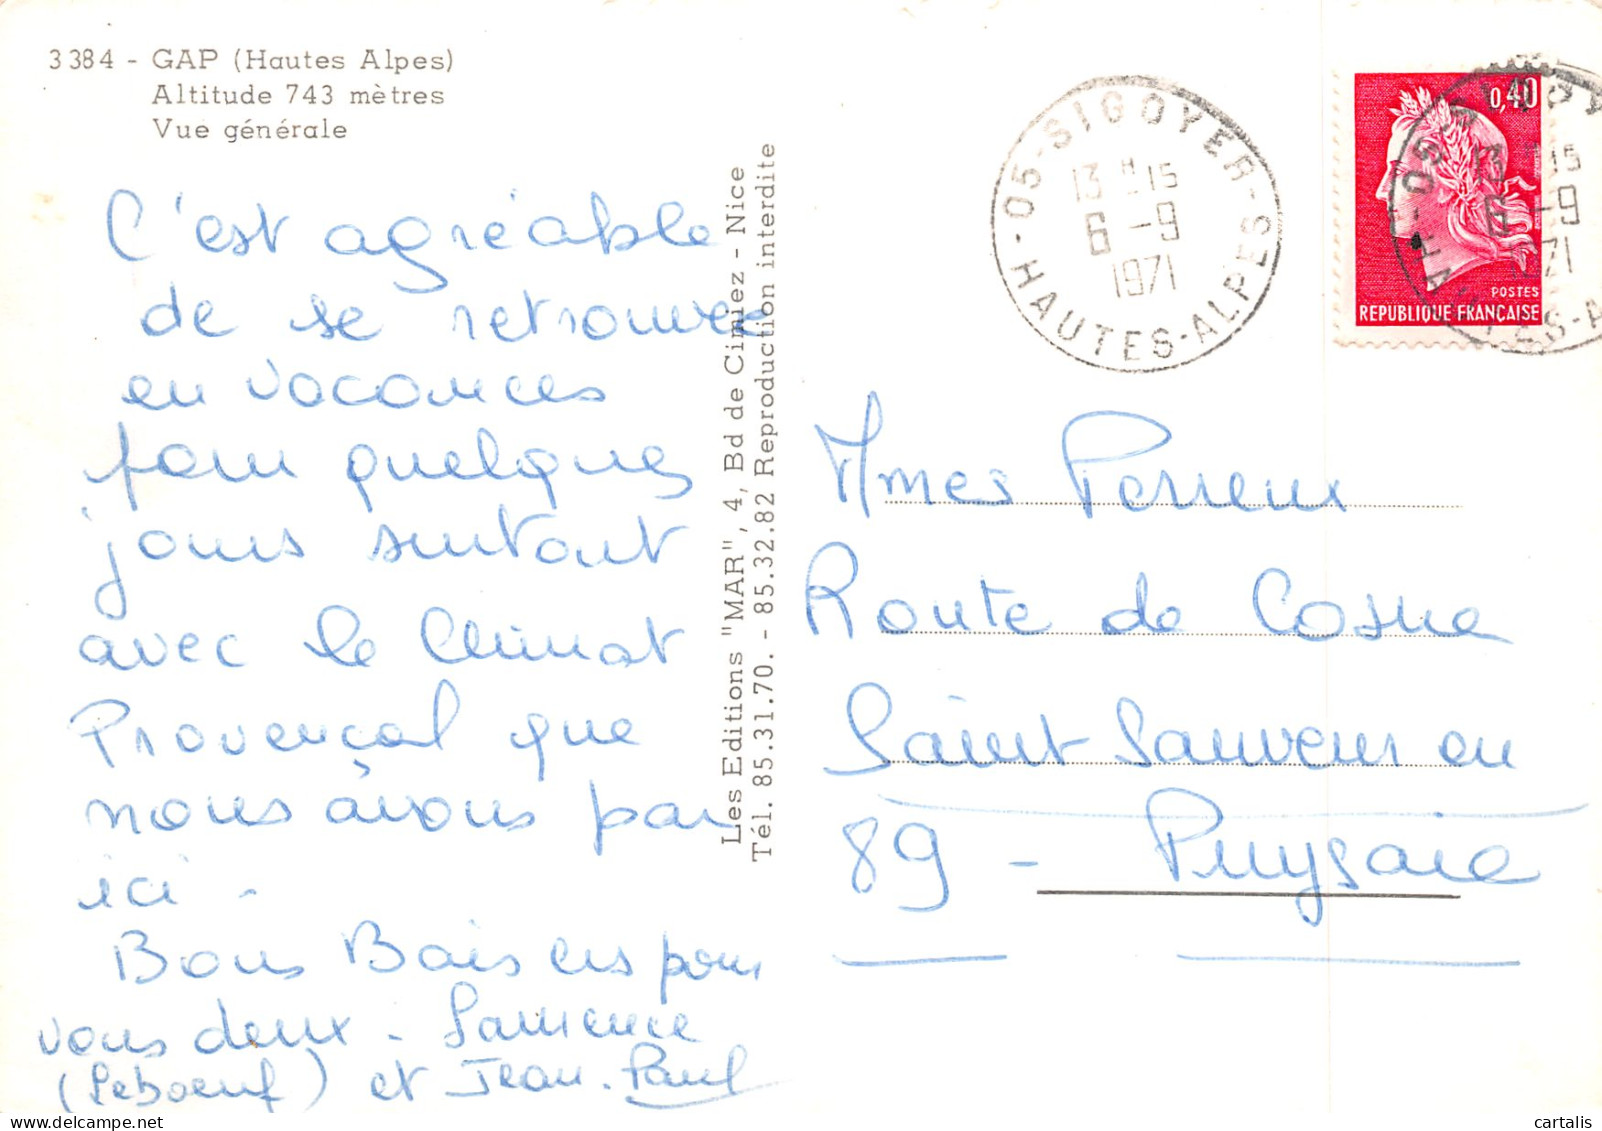 3384 - GAP (Hautes Alpes)
Altitude 743 mètres
Vue générale
C'est agréable
de se retrouver
en vacances
pour quelques
jours surtout
avec le climat
Provençal que
nous avons par
ici -
Bons Baisers pour
vous deux - Laurence
(Leboeuf) et Jean-Paul
Les Editions "MAR", 4, Bd de Cimiez - Nice
Tél. 85.31.70. - 85.32.82 Reproduction interdite
05-SIGOYER-
13H15
6 -9
1971
-HAUTES-ALPES-
0,40
POSTES
REPUBLIQUE FRANÇAISE
Mmes Perreux
Route de Cosne
Saint Sauveur en
89 - Puysaie
cartalis
delcampe.net